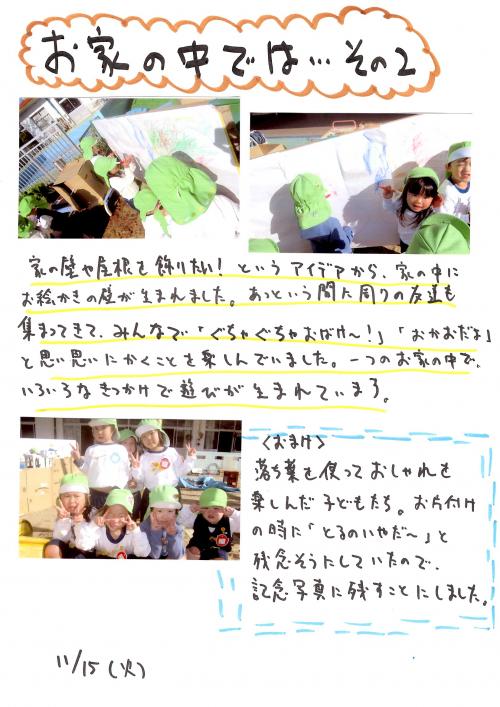 お家の中では…その2
家の壁や屋根を飾りたい！というアイデアから、家の中に
お絵かきの壁が生まれました。あっという間に周りの友達も
集まってきて、みんなで「ぐちゃぐちゃおばけ〜！」「おかおだよ」
と思い思いにかくことを楽しんでいました。一つのお家の中で、
いろいろなきっかけで遊びが生まれています。
〈おまけ〉
落ち葉を使っておしゃれを
楽しんだ子どもたち。お片付け
の時に「とるのいやだ〜」と
残念そうにしていたので、
記念写真に残すことにしました。
11/15(火)